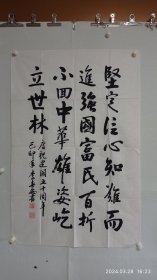 堅定信心知難而
進強國富民百折
不回中華雄姿屹
立世林
慶祝建國五十周年
己卯年李
2024.03.28 16:23